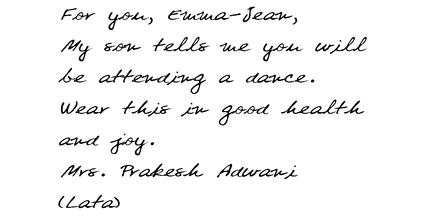 For you, Emma-Jean,
My son tells me you will
be attending a dance.
Wear this in good health
and joy.
Mrs. Prakesh Adwani
(Lata)